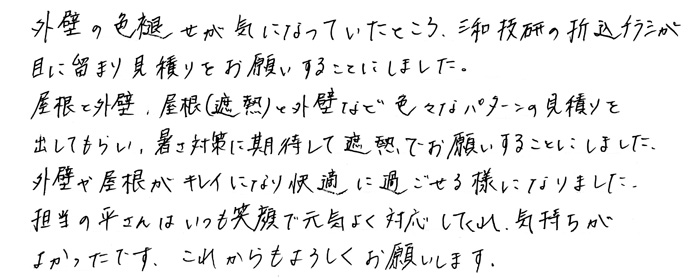 外壁の色褪せが気になっていたところ、三和技研の折込チラシが
目に留まり見積りをお願いすることにしました。
屋根と外壁、屋根(遮熱)と外壁など色々なパターンの見積りを
出してもらい、暑さ対策に期待して遮熱でお願いすることにしました、
外壁や屋根がキレイになり快適に過ごせる様になりました.
担当の平さんはいつも笑顔で元気よく対応してくれ、気持ちが
よかったです、これからもよろしくお願いします.